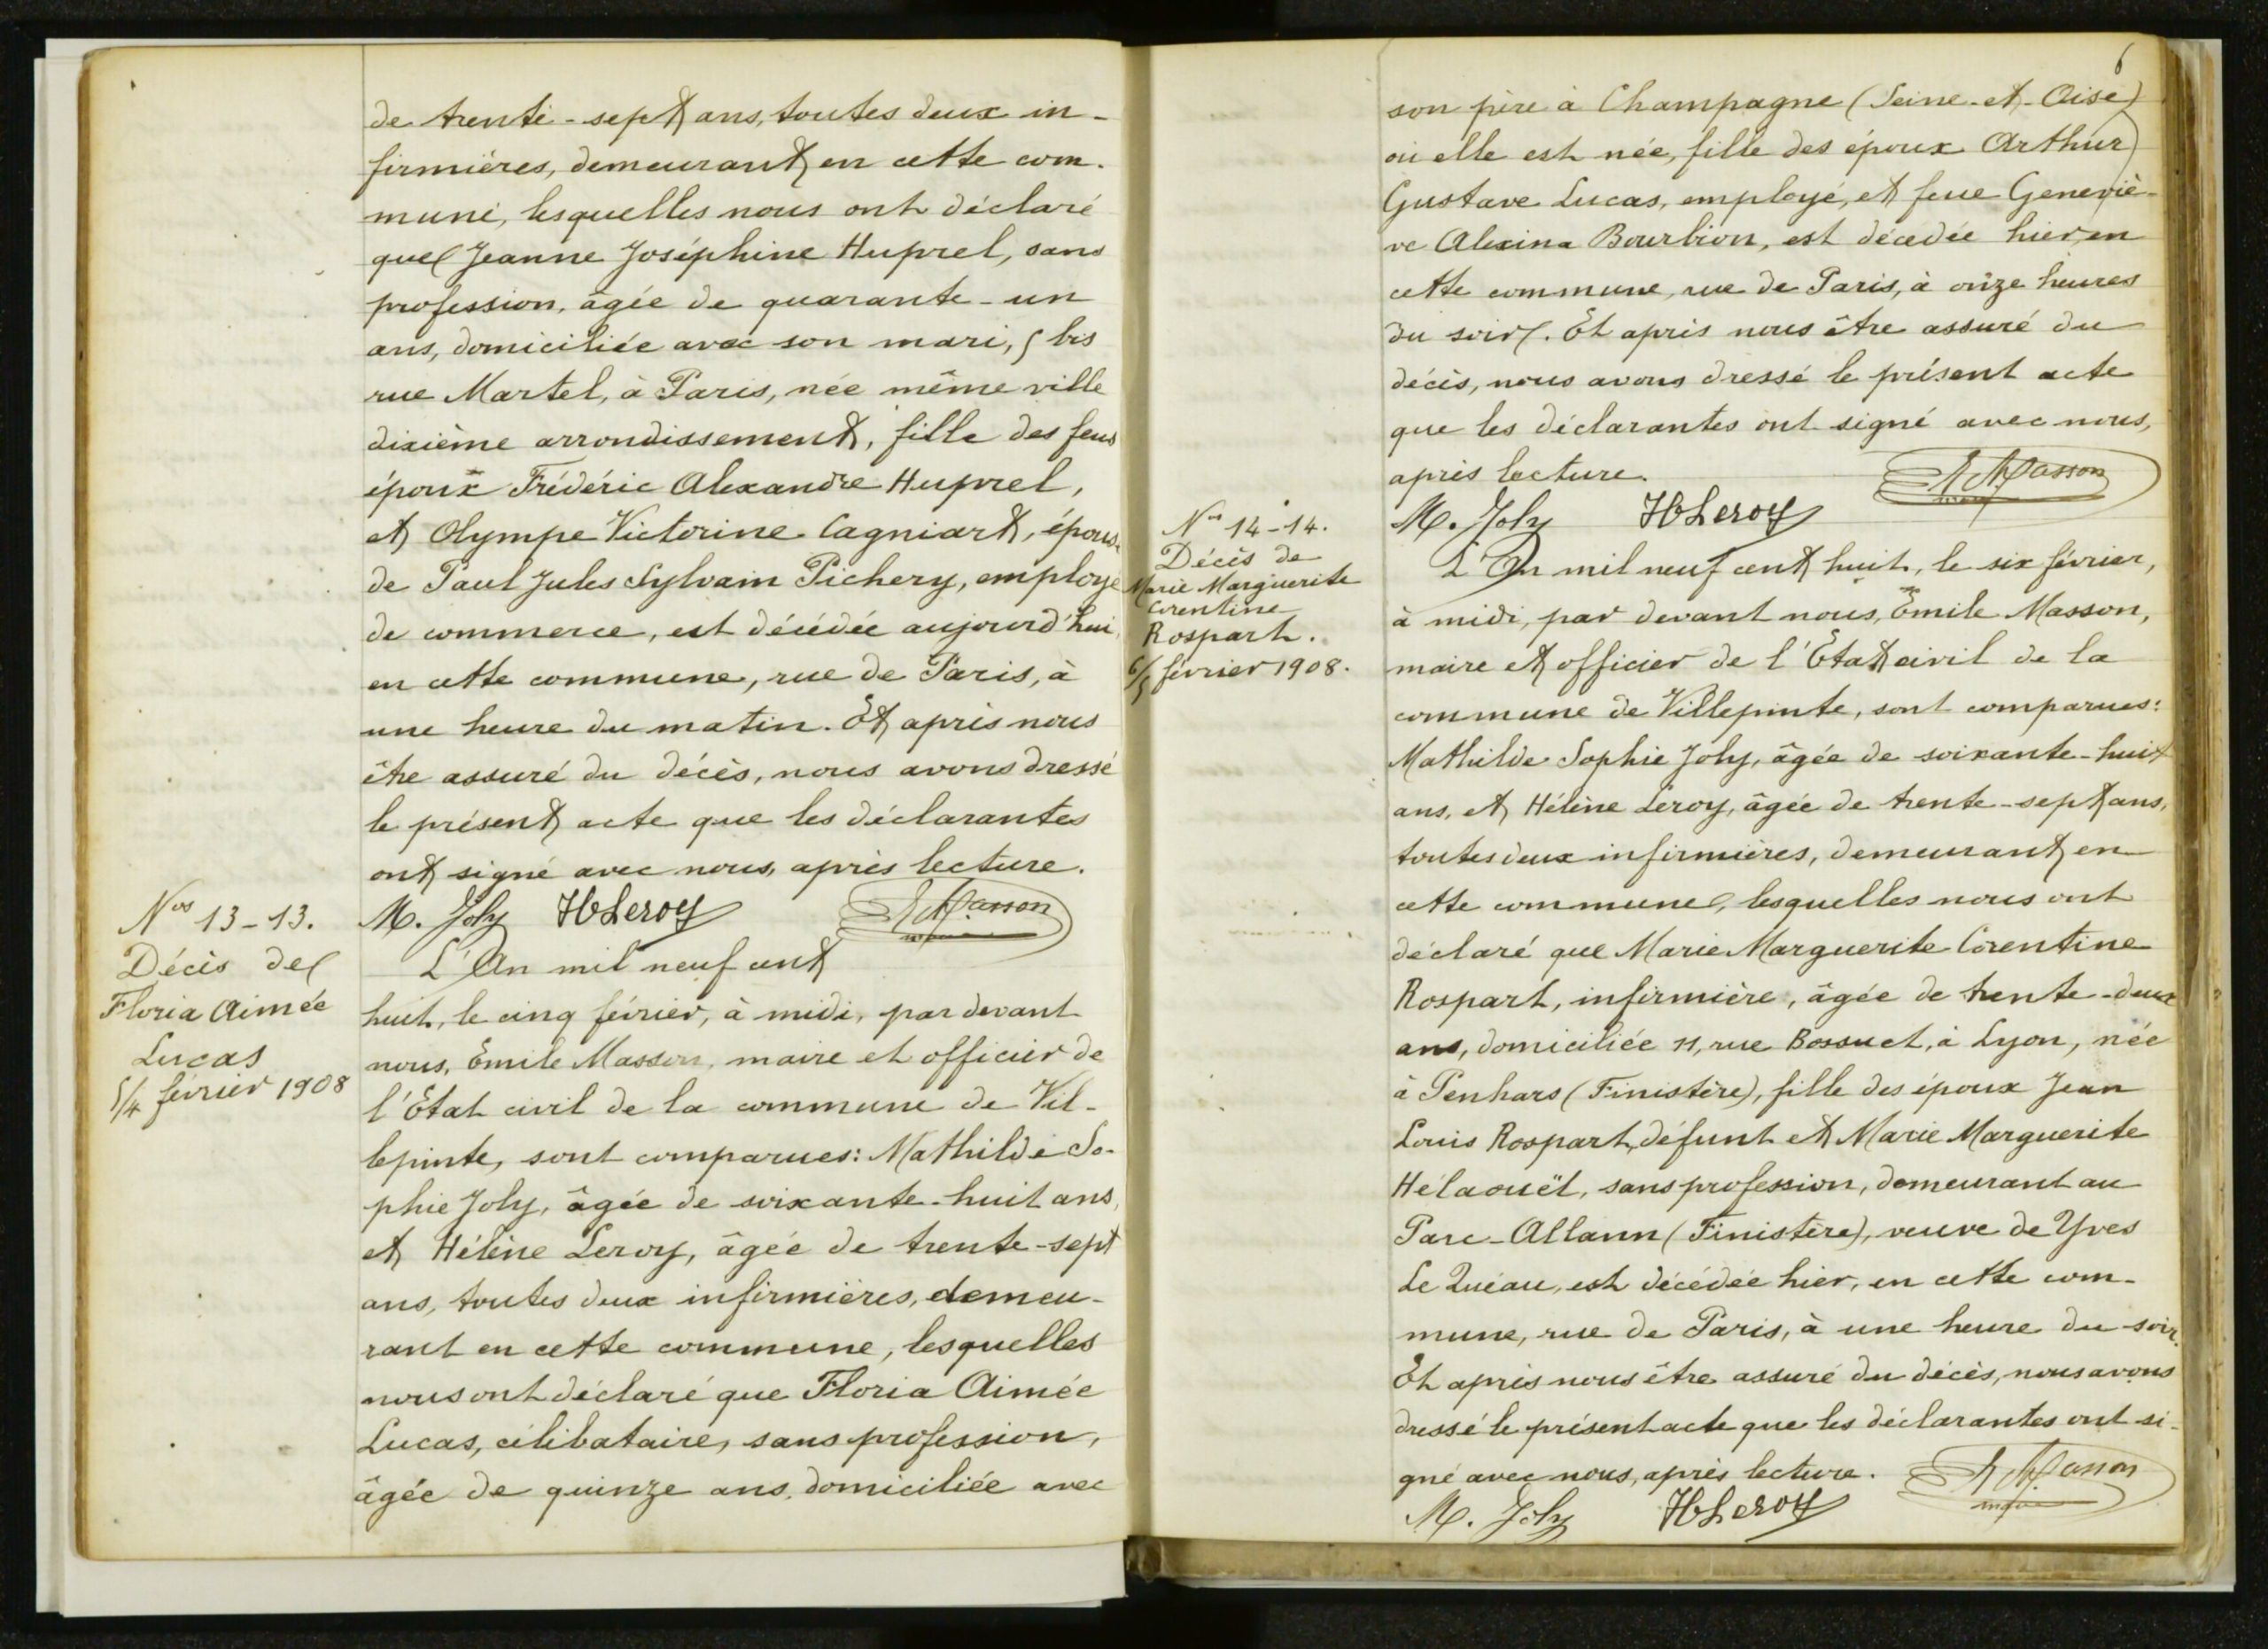 de trente-sept ans, toutes deux in-
firmières, demeurant en cette com-
mune, lesquelles nous ont déclaré
que Jeanne Joséphine Huprel, sans
profession, âgée de quarante-un
ans, domiciliée avec son mari, 5 bis
rue Martel, à Paris, née même ville
dixième arrondissement, fille des feus
époux Frédéric Alexandre Huprel,
et Olympe Victorine Cagniart, épouse
de Paul Jules Sylvain Pichery, employé
de commerce, est décédée aujourd'hui,
en cette commune, rue de Paris, à
une heure du matin. Et après nous
être assuré du décès, nous avons dressé
le présent acte que les déclarantes
ont signé avec nous, après lecture.
M. Joly HLeroy EMasson
Nos 13-13.
Décès de
Floria Aimée
Lucas
5/4 février 1908
L'An mil neuf cent
huit, le cinq février, à midi, par devant
nous, Emile Masson, maire et officier de
l'Etat civil de la commune de Vil-
lepinte, sont comparues: Mathilde So-
phie Joly, âgée de soixante-huit ans,
et Hélène Leroy, âgée de trente-sept
ans, toutes deux infirmières, demeu-
rant en cette commune, lesquelles
nous ont déclaré que Floria Aimée
Lucas, célibataire, sans profession,
âgée de quinze ans, domiciliée avec
6
son père à Champagne (Seine-et-Oise)
où elle est née, fille des époux Arthur
Gustave Lucas, employé, et feue Geneviè-
ve Alexina Bourbion, est décédée hier, en
cette commune, rue de Paris, à onze heures
du soir. Et après nous être assuré du
décès, nous avons dressé le présent acte
que les déclarantes ont signé avec nous,
après lecture. EMasson
M. Joly HLeroy
Nos 14-14.
Décès de
Marie Marguerite
Corentine
Rospart.
6/5 février 1908.
L'An mil neuf cent huit, le six février,
à midi, par devant nous, Emile Masson,
maire et officier de l'Etat civil de la
commune de Villepinte, sont comparues:
Mathilde Sophie Joly, âgée de soixante-huit
ans, et Hélène Leroy, âgée de trente-sept ans,
toutes deux infirmières, demeurant en
cette commune, lesquelles nous ont
déclaré que Marie Marguerite Corentine
Rospart, infirmière, âgée de trente-deux
ans, domiciliée 11, rue Bossuet, à Lyon, née
à Penhars (Finistère), fille des époux Jean
Louis Rospart, défunt et Marie Marguerite
Hélaouët, sans profession, demeurant au
Parc-Allann (Finistère), veuve de Yves
Le Quéau, est décédée hier, en cette com-
mune, rue de Paris, à une heure du soir.
Et après nous être assuré du décès, nous avons
dressé le présent acte que les déclarantes ont si-
gné avec nous, après lecture. EMasson
M. Joly HLeroy